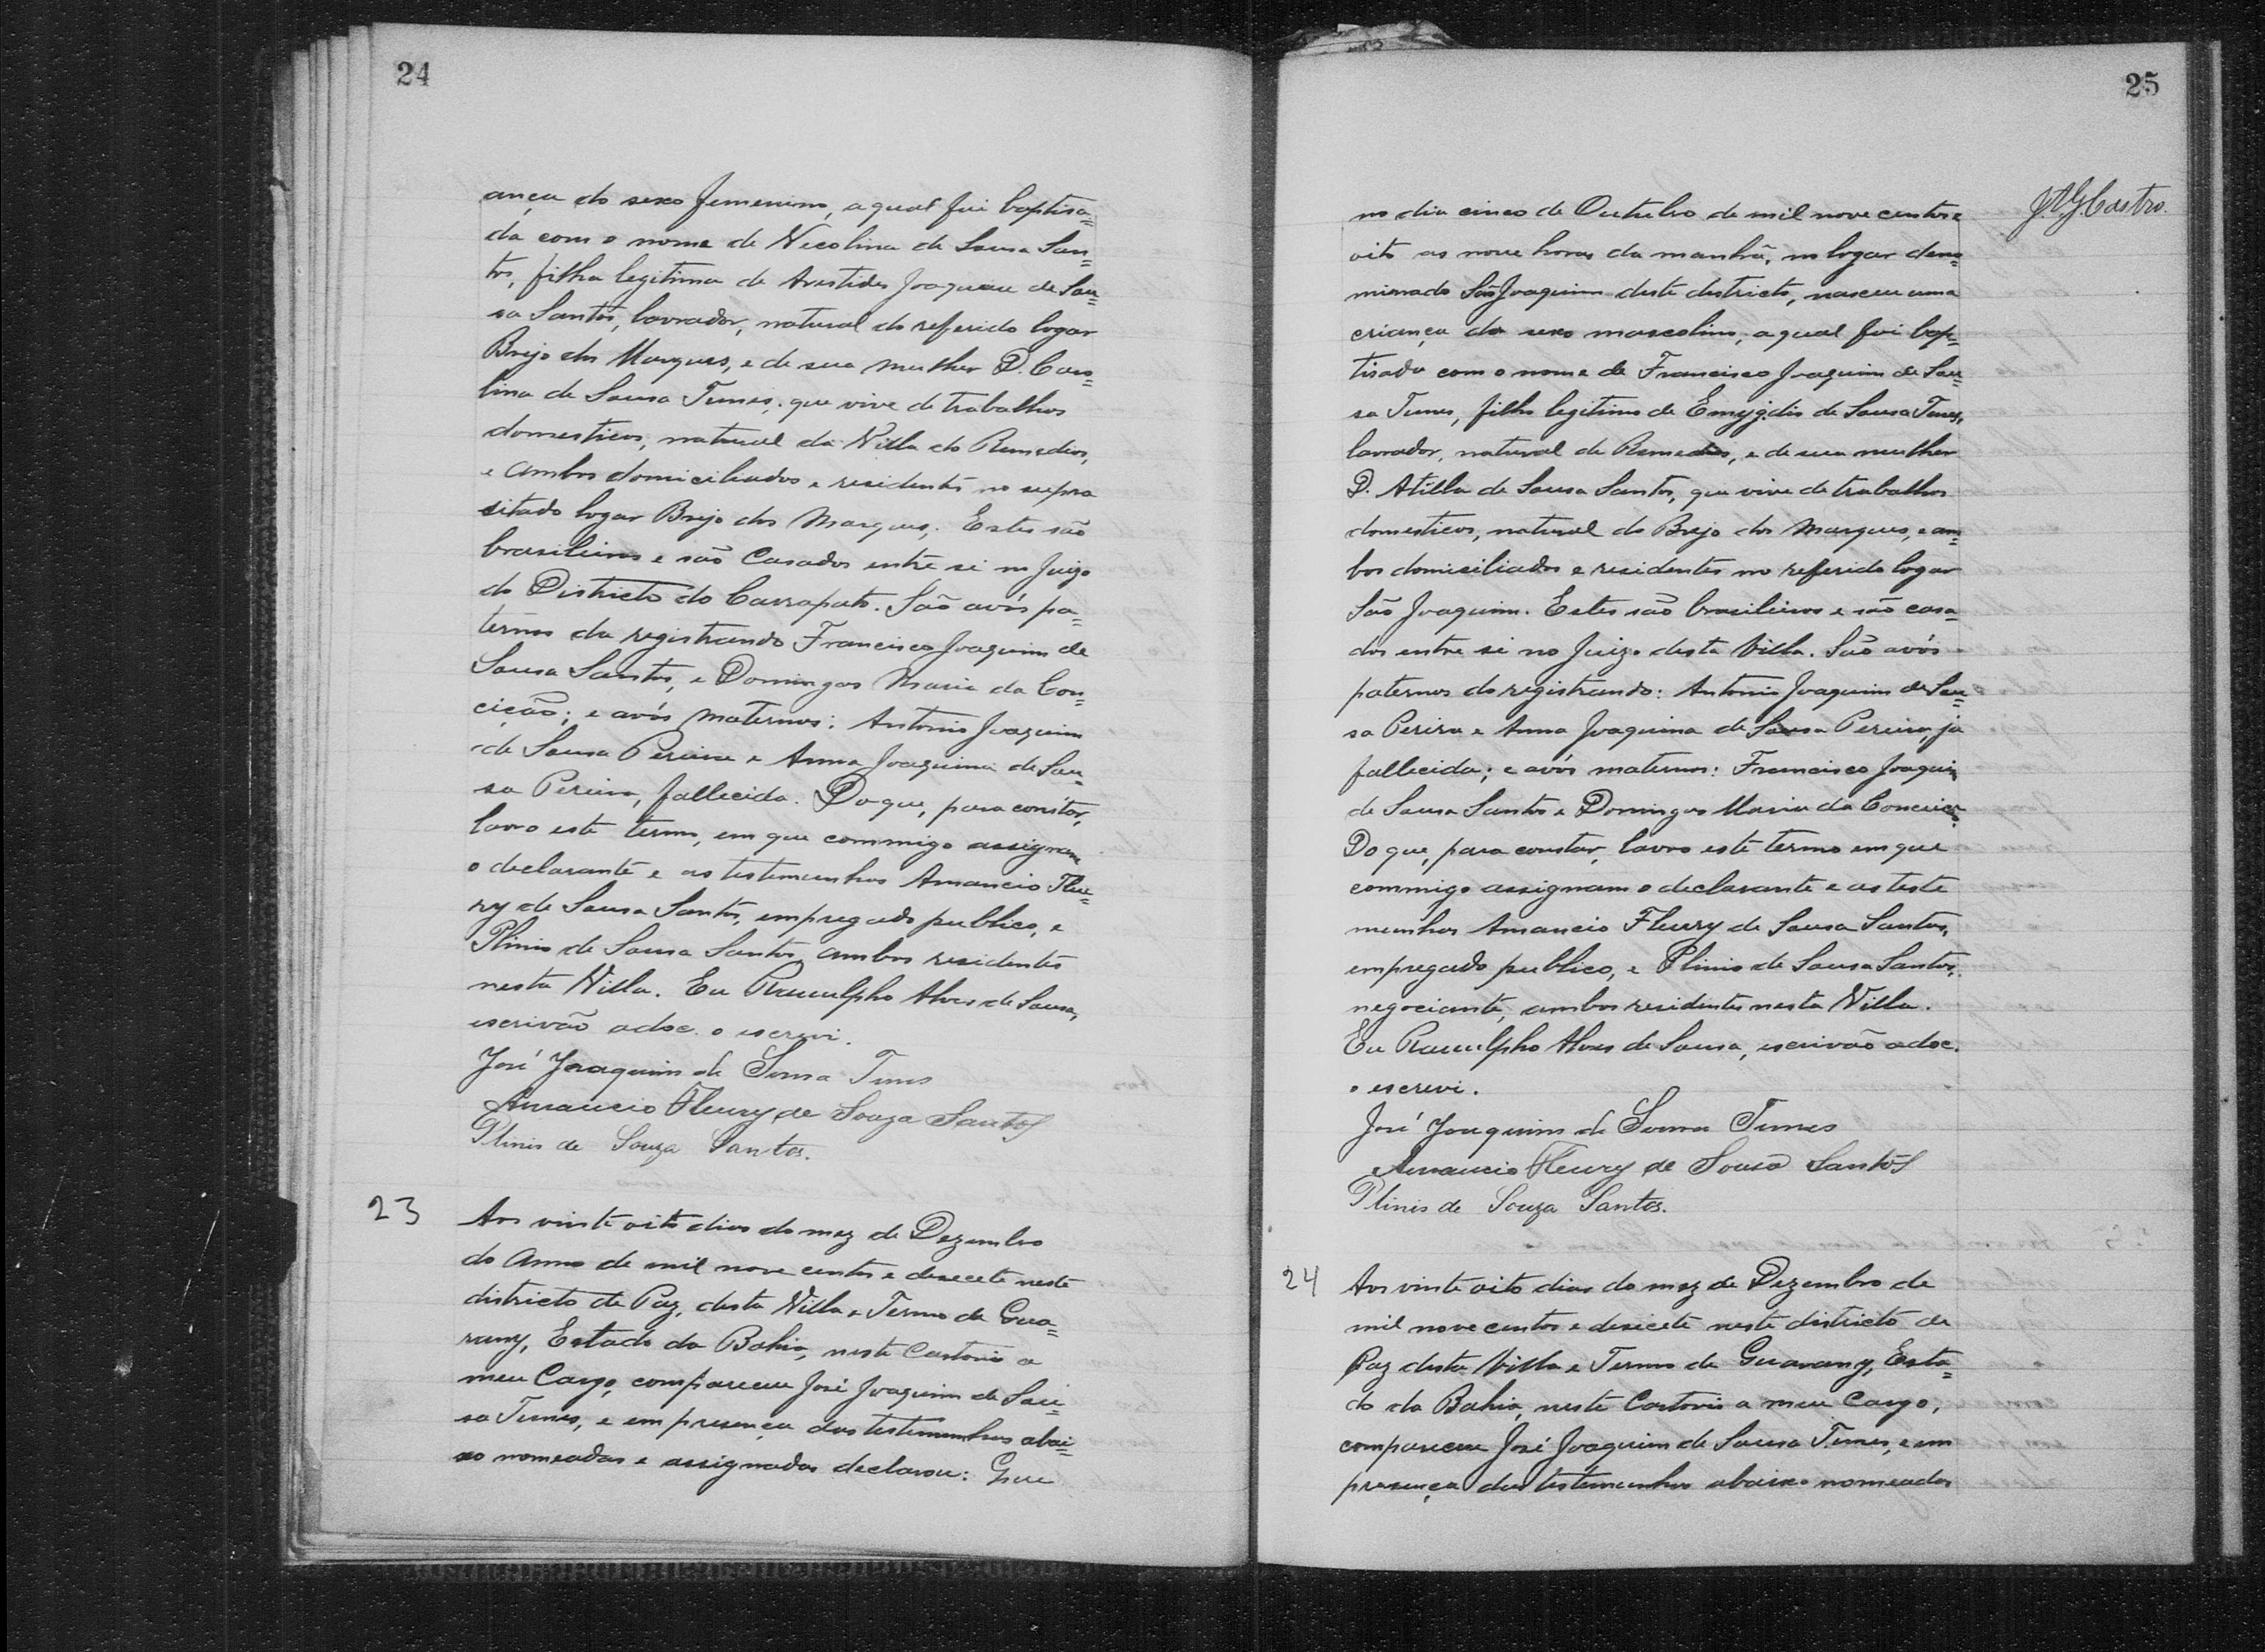 24
ança do sexo femenino, a qual foi baptisa=
da com o nome de Nicolina de Sousa San=
tos, filha legitima de Aristides Joaquim de Sou=
sa Santos, lavrador, natural do referido logar
Brejo dos Marques, e de sua mulher D. Caro=
lina de Sousa Tunes, que vive de trabalhos
domesticos, natural da Villa do Remedios,
e ambos domiciliados e residentes no supra
sitado logar Brejo dos Marques. Estes são
brasileiros e são Casados entre si no Juizo
do Districto do Carrapato. São avós pa=
ternos da registrando Francisco Joaquim de
Sousa Santos, e Domingas Maria da Con=
cição; e avós maternos: Antonio Joaquim
de Sousa Pereira e Anna Joaquina de Sou=
sa Pereira, fallecida. Do que, para constar,
lavro este termo, em que commigo assignam
o declarante e as testemunhas Amancio Fleu=
ry de Sousa Santos, empregado publico, e
Plinio de Sousa Santos, ambos residentes
nesta Villa. Eu Ranulpho Alves de Sousa,
escrivão adoc. o escrevi.
José Joaquim de Sousa Tunes
Amancio Fleury de Souza Santos
Plinio de Souza Santos.
23
Aos vinte oito dias do mez de Dezembro
do anno de mil nove centos e desecete neste
districto de Paz, desta Villa e Termo de Gua=
rany, Estado da Bahia, neste Cartorio a
meu Cargo, compareceu José Joaquim de Sou=
sa Tunes, e em presença das testemunhas abai=
xo nomeadas e assignadas declarou: Que
25
J.A.G.Castro.
no dia cinco de Outubro de mil nove centos e
oito as nove horas da manhã, no logar deno=
minado São Joaquim deste districto, nasceu uma
criança do sexo mascolino, a qual foi bap=
tisada com o nome de Francisco Joaquim de Sou=
sa Tunes, filho legitimo de Emygdio de Sousa Tunes,
lavrador, natural de Remedios, e de sua mulher
D. Atilla de Sousa Santos, que vive de trabalhos
domesticos, natural do Brejo dos Marques, e am=
bos domiciliados e residentes no referido logar
São Joaquim. Estes são brasileiros e são casa=
dos entre si no Juizo desta Villa. São avós
paternos do registrando: Antonio Joaquim de Sou=
sa Perira e Anna Joaquina de Sousa Pereira, ja
fallecida; e avós maternos: Francisco Joaquim
de Sousa Santos e Domingas Maria da Conceição.
Do que, para constar, lavro este termo em que
commigo assignam o declarante e as teste
munhas Amancio Fleury de Sousa Santos,
empregado publico, e Plinio de Sousa Santos,
negociante, ambos residentes nesta Villa.
Eu Ranulpho Alves de Sousa, escrivão adoc.
o escrevi.
José Joaquim de Sousa Tunes
Amancio Fleury de Sousa Santos
Plinio de Souza Santos.
24
Aos vinte oito dias do mez de Dezembro de
mil nove centos e desecete neste districto de
Paz desta Villa e Termo de Guarany, Esta=
do da Bahia, neste Cartorio a meu Cargo,
compareceu José Joaquim de Sousa Tunes, e em
presença das testemunhas abaixo nomeadas